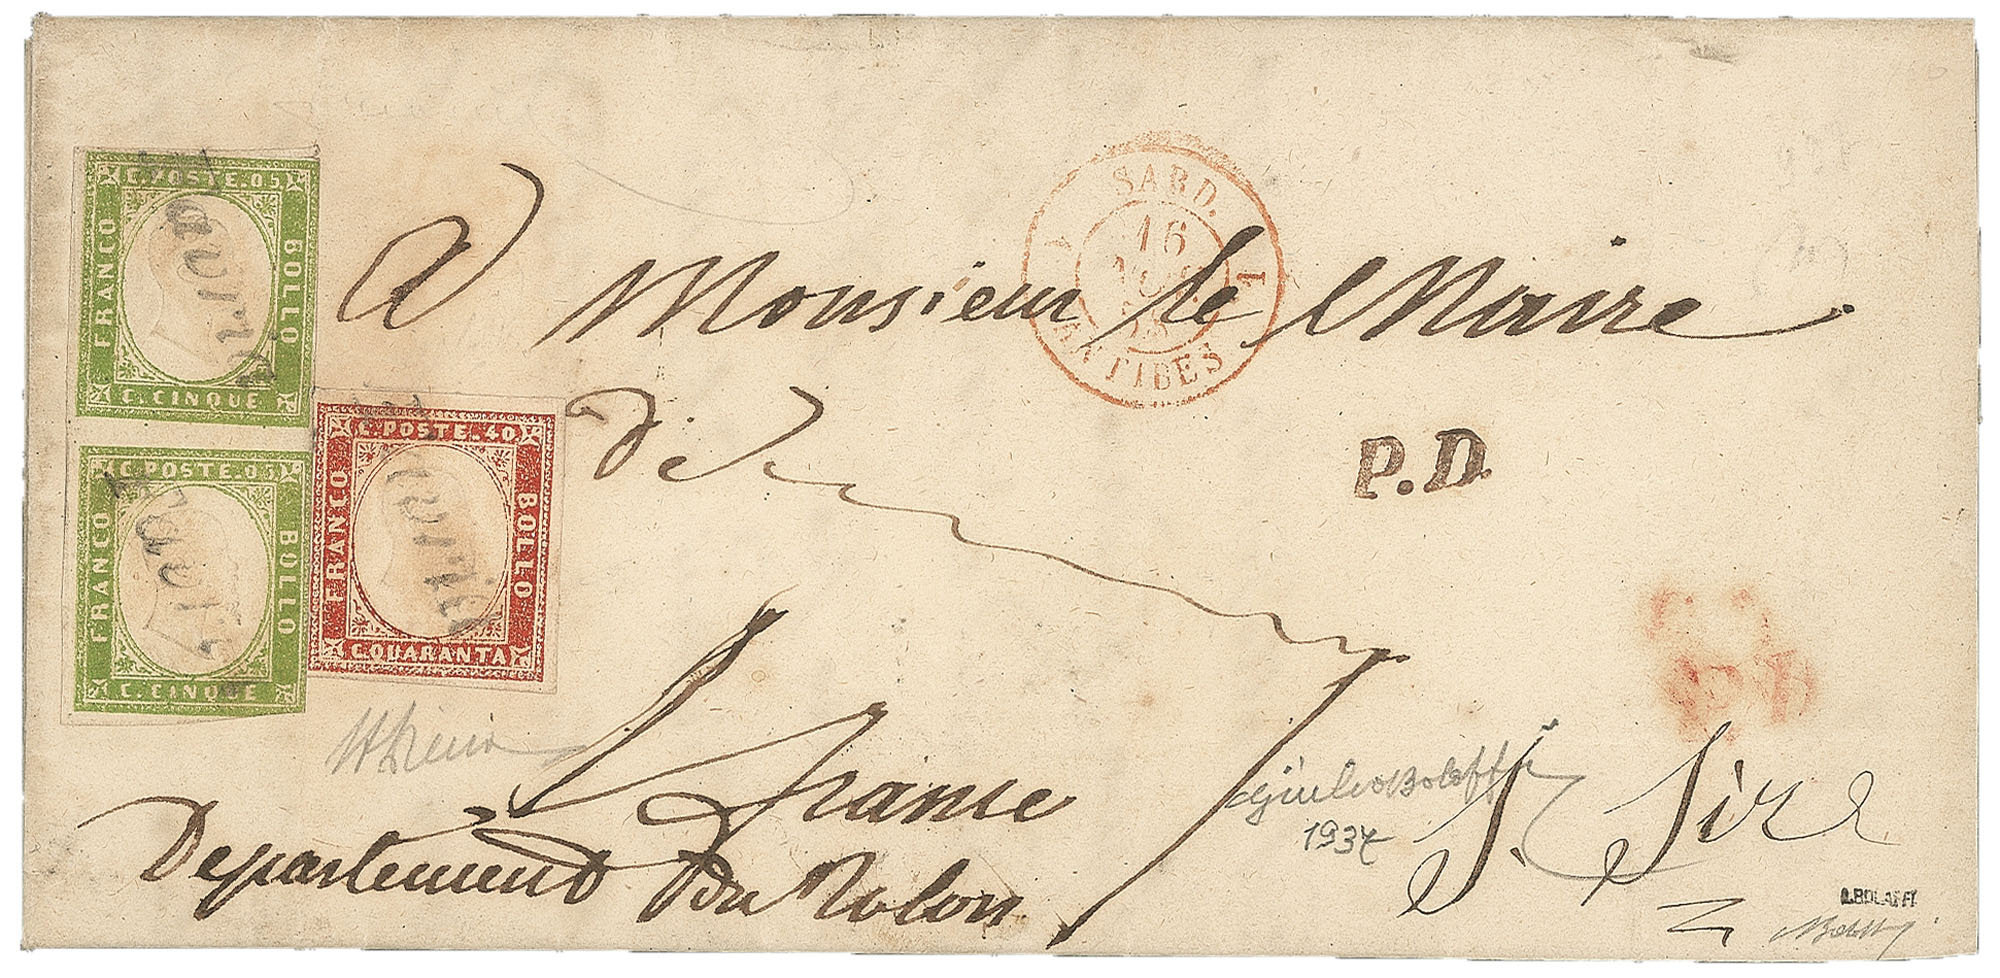 C. POSTE. 05
FRANCO
BOLLO
C. CINQUE
C. POSTE. 05
FRANCO
BOLLO
C. CINQUE
C. POSTE. 40
FRANCO
BOLLO
C. QUARANTA
SARD.
16
ANTIBES
A Monsieur le Maire
de
P.D.
P.D
S. Sire
France
Departement du
Giulio Bolaffi
1937
A. BOLAFFI